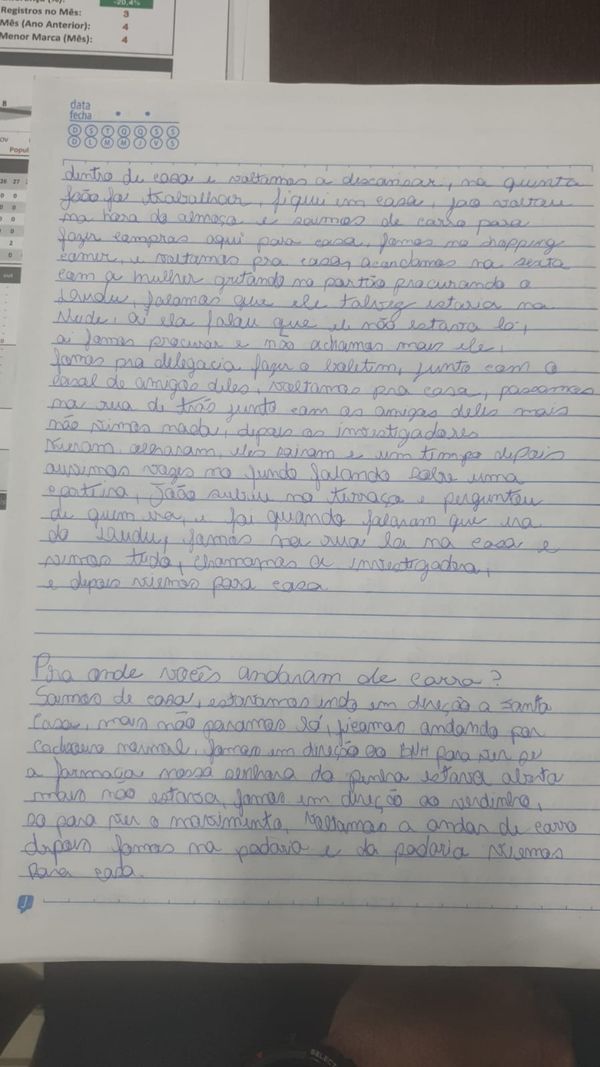 -20,4%
Registros no Mês: 3
Mês (Ano Anterior): 4
Menor Marca (Mês): 4
data
fecha
D S T Q Q S S
D L M M J V S
dentro de casa e voltamos a descansar, na quinta
João foi trabalhar, fiquei em casa, João voltou
na hora do almoço e saimos de carro para
fazer compras aqui para casa, fomos no shopping
comer, e voltamos pra casa, acordamos na sexta
com a mulher gritando no portão procurando o
falamos que ele talvez estaria na
ai ela falou que ele não estava lá,
ai fomos procurar e não achamos mais ele,
fomos pra delegacia fazer o boletim, junto com o
casal de amigos deles, voltamos pra casa, passamos
na rua de trás junto com os amigos deles mais
não vimos nada, depois os investigadores
vieram, olharam, eles sairam e um tempo depois
ouvimos vozes no fundo falando sobre uma
João subiu no terraço e perguntou
de quem era, e foi quando falaram que era
do fomos na rua la na casa e
vimos tudo, chamamos a investigadora,
e depois viemos para casa
Pra onde vocês andaram de carro?
Saimos de casa, estavamos indo em direção a Santa
Casa, mais não paramos lá, ficamos andando por
normal, fomos em direção ao BNH para ver se
a farmacia nossa senhora da penha estava aberta
mais não estava, fomos em direção ao verdinho,
so para ver o movimento, voltamos a andar de carro
depois fomos na padaria e da padaria viemos
para casa.